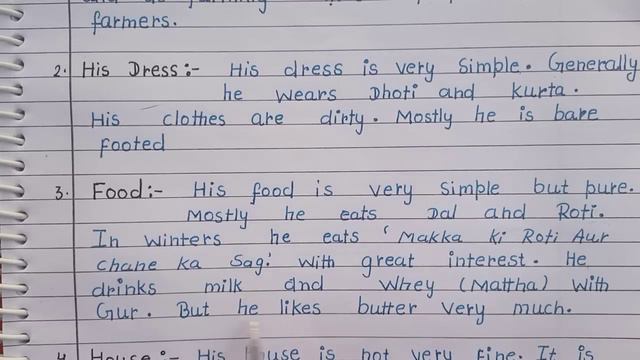 farmers.
2. His Dress:- His dress is very simple. Generally
he wears Dhoti and Kurta.
His clothes are dirty. Mostly he is bare
footed
3. Food:- His food is very simple but pure.
Mostly he eats Dal and Roti.
In winters he eats 'Makka ki Roti Aur
chane ka Sag' with great interest. He
drinks milk and Whey (Mattha) with
Gur. But he likes butter very much.
4. House:- His house is not very fine. It is